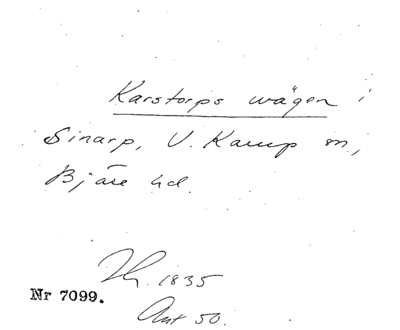 Karstorps wägen i
Sinarp, V. Karup sn,
Bjäre hd.
1835
Nr 7099.
Ant 50.